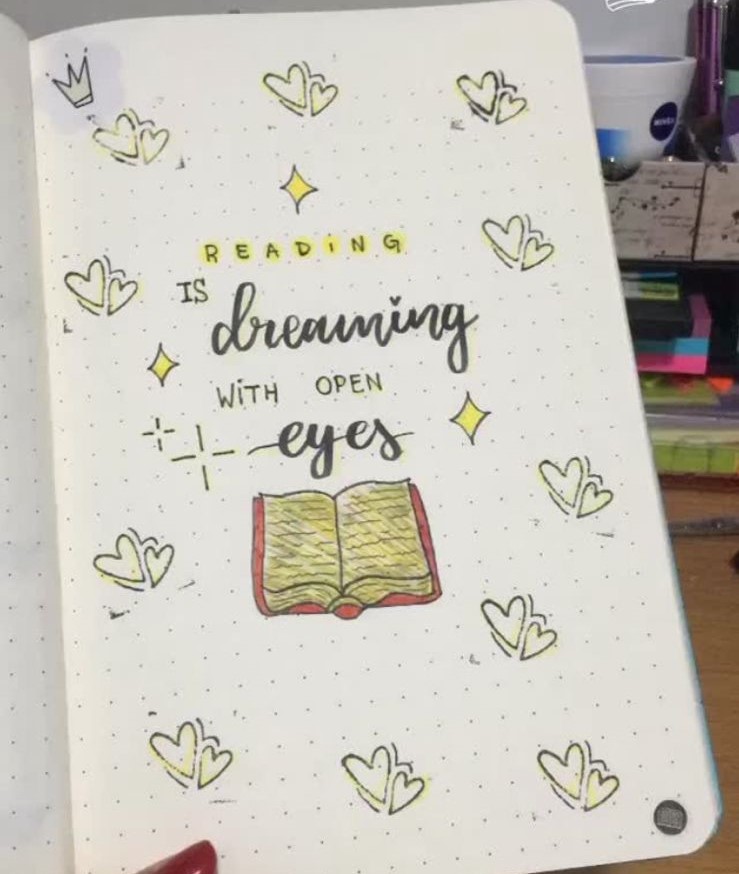 READiNG
IS dreaming
WiTH OPEN
eyes
NIVEA